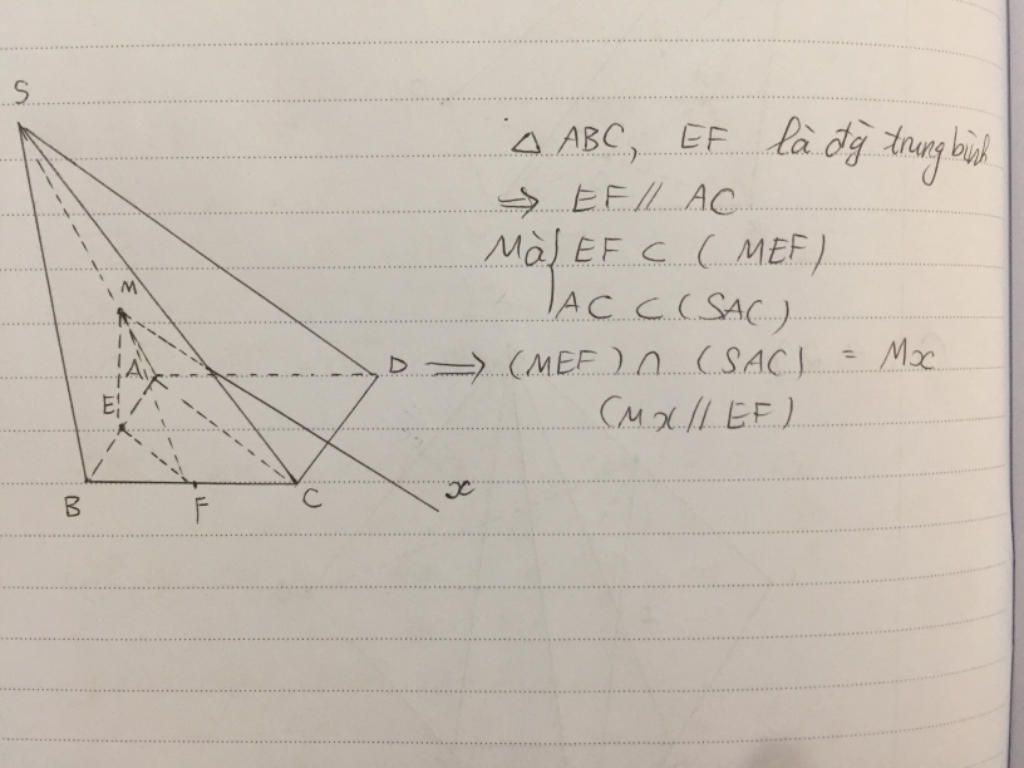 S
M
A
D
E
B
F
C
x
△ ABC, EF là đg̀ trung bình
⇒ EF // AC
Mà | EF ⊂ (MEF)
| AC ⊂ (SAC)
⇒ (MEF) ∩ (SAC) = Mx
(Mx // EF)